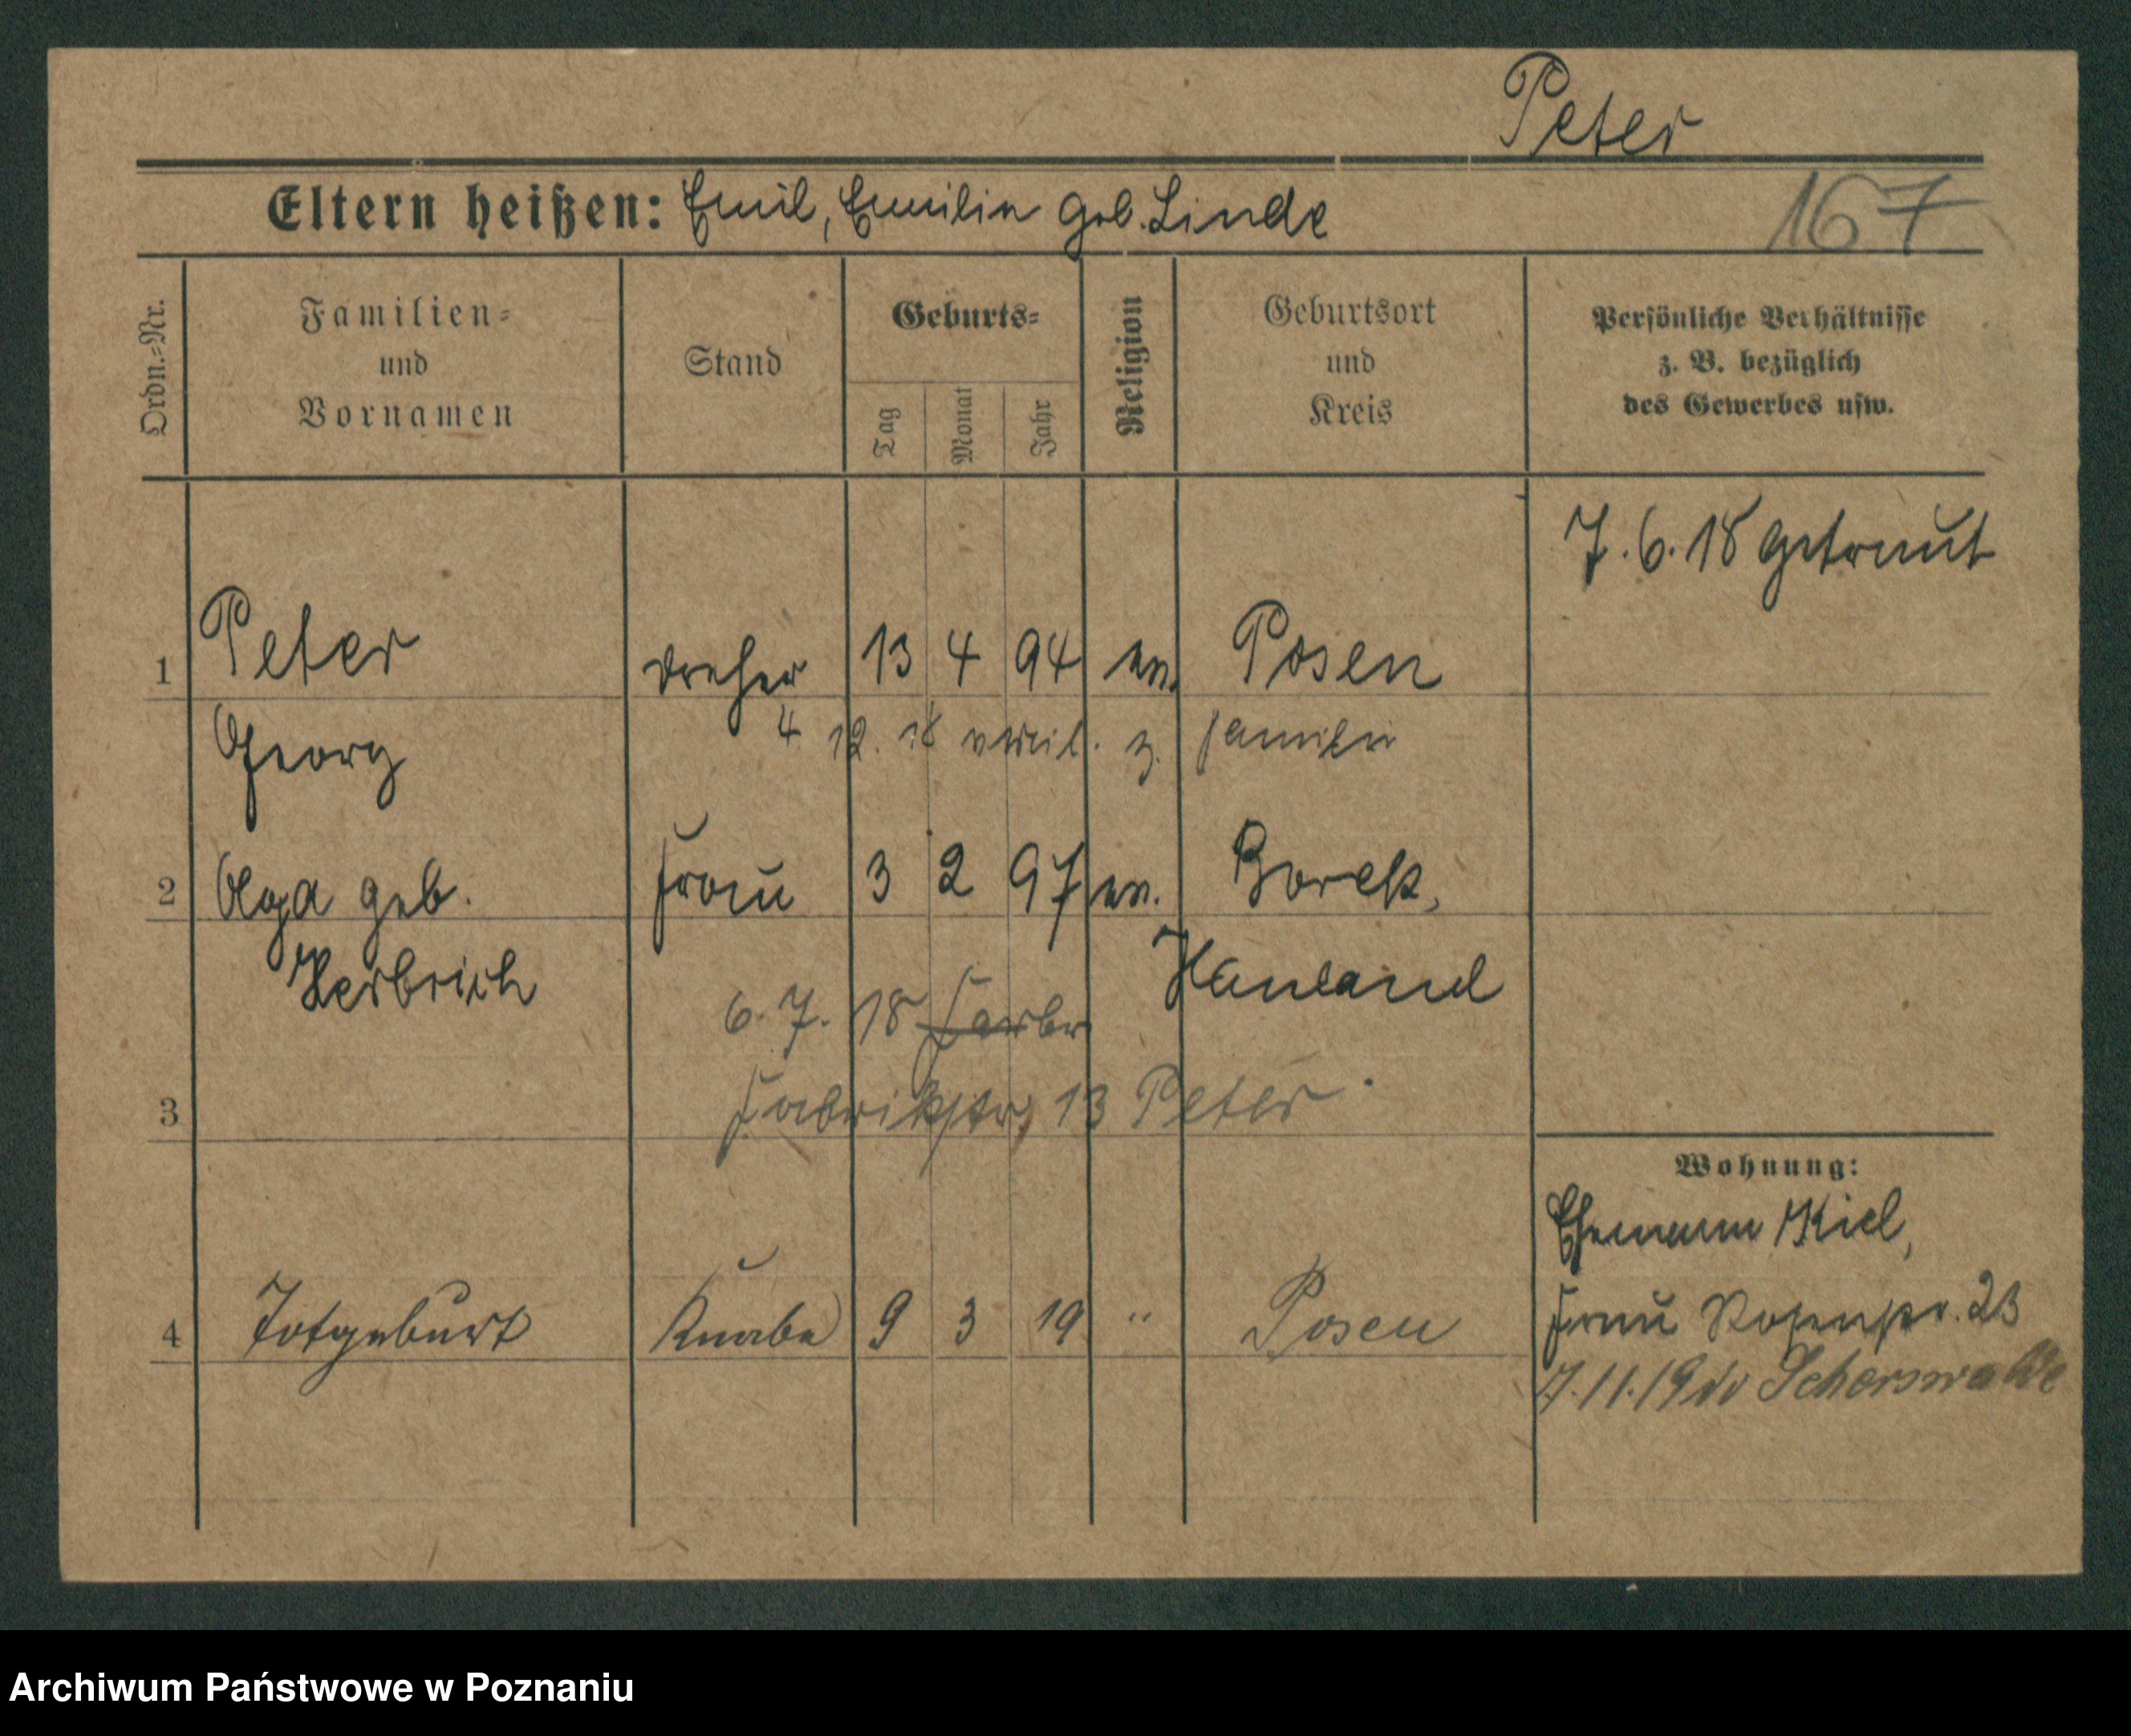 Peter
Eltern heißen: Emil, Emilie geb. Linde
167
Ordn.-Nr.
Familien-
und
Vornamen
Stand
Geburts-
Tag
Monat
Jahr
Religion
Geburtsort
und
Kreis
Persönliche Verhältnisse
z. B. bezüglich
des Gewerbes usw.
7.6.18 getraut
1 Peter Dreher 13 4 94 ev. Posen
Georg
4. 12. 18 z. Familie
2 Olga geb. Frau 3 2 97 ev. Borek,
Herbrich Hauland
6. 7. 18
3 Fabrikstr. 13 Peter
Wohnung:
Ehemann Kiel,
4 Totgeburt Knabe 9 3 19 " Posen
Frau 23
7.11.19
Archiwum Państwowe w Poznaniu